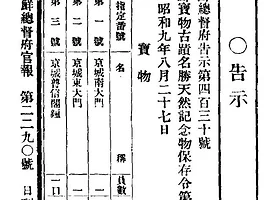 〇告示
總督府告示第四百三十號
寶物古蹟名勝天然記念物保存令第
昭和九年八月二十七日
寶物
指定番號 名稱 員數
第一號 京城南大門 一
第二號 京城東大門 一
第三號 京城普信閣鐘 一口
鮮總督府官報 第二二九〇號